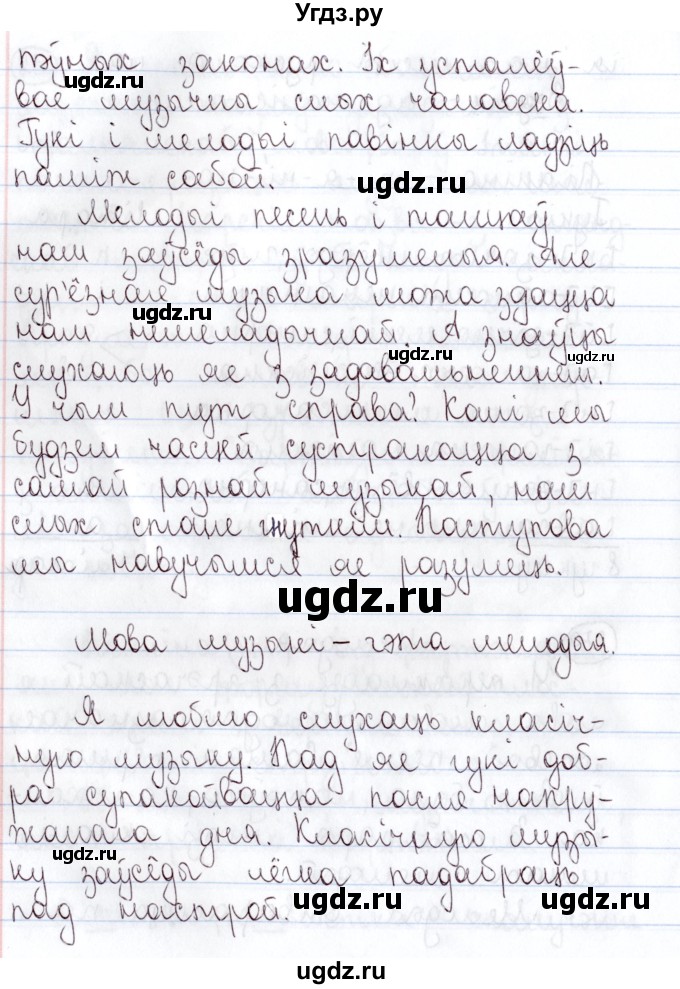 Угдз.ру
пэўных законах. Іх усталёў-
вае музычны слых чалавека.
Гукі і мелодыі павінны ладзіць
паміж сабой.
Мелодыі песень і танцаў
нам заўсёды зразумелыя. Але
сур'ёзная музыка можа здацца
нам немеладычнай. А знаўцы
слухаюць яе з задавальненнем.
У чым тут справа? Калі мы
будзем часцей сустракацца з
самай рознай музыкай, наш
слых стане чуткім. Паступова
мы навучымся яе разумець.
Мова музыкі – гэта мелодыя.
Я люблю слухаць класіч-
ную музыку. Пад яе гукі доб-
ра супакойвацца пасля напру-
жанага дня. Класічную музы-
ку заўсёды лёгка падабраць
пад настрой.
ugdz.ru
ugdz.ru
ugdz.ru
ugdz.ru
ugdz.ru
ugdz.ru
ugdz.ru
ugdz.ru
ugdz.ru
ugdz.ru